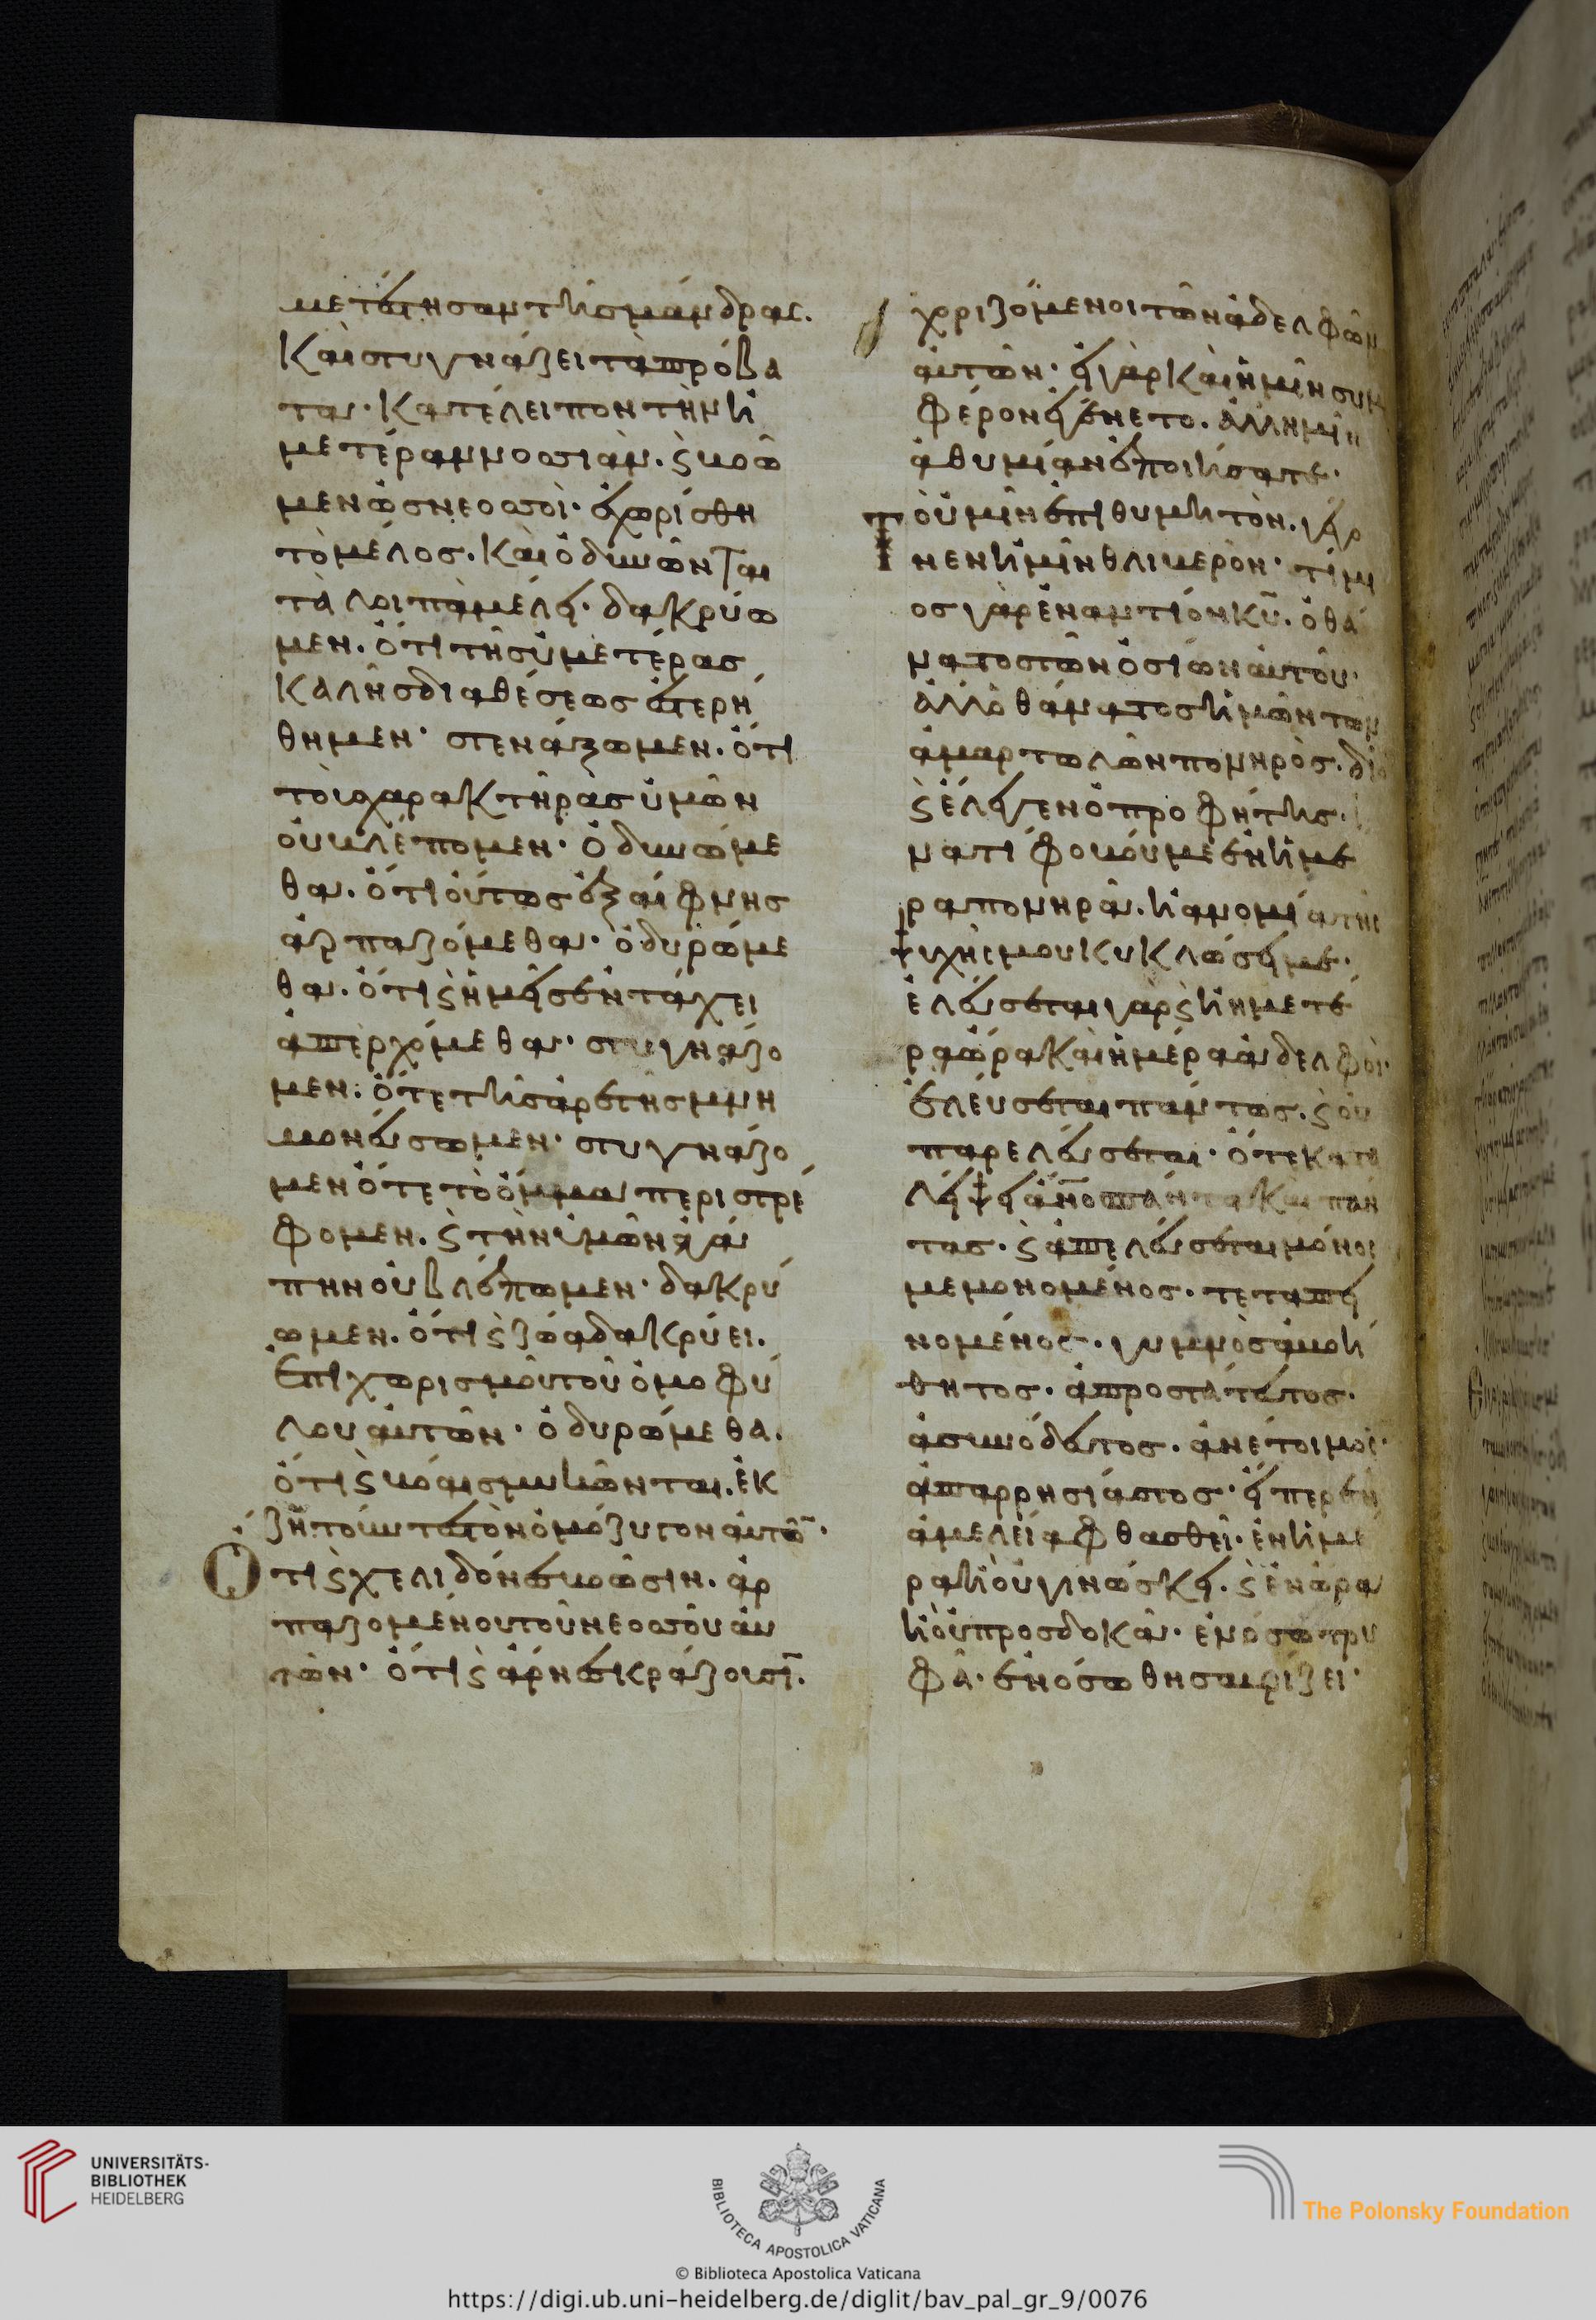 μετέστησαν τῆς μάνδρας.
Καὶ στυγνάζει τὰ πρόβα
τα· κατέλειπον τὴν ἡ
μετέραν νοσιὰν. ϛ βοῶ
μεν ὡς νεοσσοὶ· ἐχωρίσθη
τὸ μέλος. καὶ ὀδυνῶνται
τὰ λοιπὰ μέλει· δακρύω
μεν. ὅτι τῆς ὑμετέρας
καλῆς διαθέσεως ἐστερή
θημεν· στενάξωμεν. ὅτι
τοὺς χαρακτῆρας ὑμῶν
οὐ βλέπομεν· ὀδυνώμε
θα. ὅτι οὕτως ἐξαίφνης
ἁρπαζόμεθα· ὀδυρώμε
θα. ὅτι ϛ ἡμεῖς ἐν τάχει
ἀπερχόμεθα· στυγνάζο
μεν. ὅτε τῆς ἀρετῆς μνη
μονεύσωμεν· στυγνάζο
μεν ὅτε τὸ ὄμμα περιστρέ
φομεν. ϛ τὴν ὑμῶν ἀγά
πην οὐ βλέπωμεν· δακρύ
ωμεν. ὅτι ϛ ζῶα δακρύει.
Ἐπὶ χωρισμοῦ τοῦ ὁμοφύ
λου αὐτῶν· ὀδυρώμεθα.
ὅτι ϛ βόαις μυκῶνται. ἐκ
ζητούντα τὸν ὁμόζυγον αὐτῶ̄·
Ὅτι ϛ χελιδόνες βοῶσιν. ἁρ
παζομένου τοῦ νεοσσοῦ αὐ
τῶν· ὅτι ϛ ἄρνες κράζουσῑ.
χοριζόμενοι τῶν ἀδελφῶν
αὐτῶν· εἰ γὰρ καὶ ἡμῖν συμ
φέρον ἐγένετο. ἀλλ ἡμῖν
ἀθυμίαν ἐποιήσατε·
τὸ ὑμῖν ἐπιθυμητὸν. γάρ
ἦν ἐν ἡμῖν θλιβερὸν· τίμι
ος γὰρ ἐναντίον κ̄ῡ. ὁ θά
νατος τῶν ὁσίων αὐτοῦ·
ἀλλ ὁ θάνατος ἡμῶν τῶν
ἁμαρτωλῶν πονηρὸς. διὸ
ϛ ἔλεγεν ὁ προφήτης.
ἵνα τί φοβοῦμε ἐν ἡμέ
ρα πονηρᾶ. ἡ ἀνομία τῆς
ψυχῆς μου κυκλώσει με·
ἐλεύσεται γὰρ ϛ ἡ ἡμετέ
ρα ὥρα καὶ ἡμέρα ἀδελφοὶ·
ἐλεύσεται πάντως. ϛ οὐ
παρελεύσεται· ὅτε κατα
λείψει ἄν̄ο̄ς πάντα καὶ πάν
τας· ϛ ἀπελεύσεται μόνος
μεμονομένος. τεταπει
νομένος. γυμνὸς ἀβοή
θητος· ἀπροστάτευτος.
ἀσυνόδευτος. ἀνέτοιμος·
ἀπαρρησίαστος· εἴπερ ἐν
ἀμελεία φθασθεῖ· ἐν ἡμέ
ρα ἧ οὐ γινώσκει. ϛ ἐν ὥρα
ἧ οὐ προσδοκᾶ· ἐν ὅσω τρυ
φᾶ· ἐν ὅσω θησαυρίζει·
UNIVERSITÄTS-
BIBLIOTHEK
HEIDELBERG
BIBLIOTECA APOSTOLICA VATICANA
The Polonsky Foundation
© Biblioteca Apostolica Vaticana
https://digi.ub.uni-heidelberg.de/diglit/bav_pal_gr_9/0076